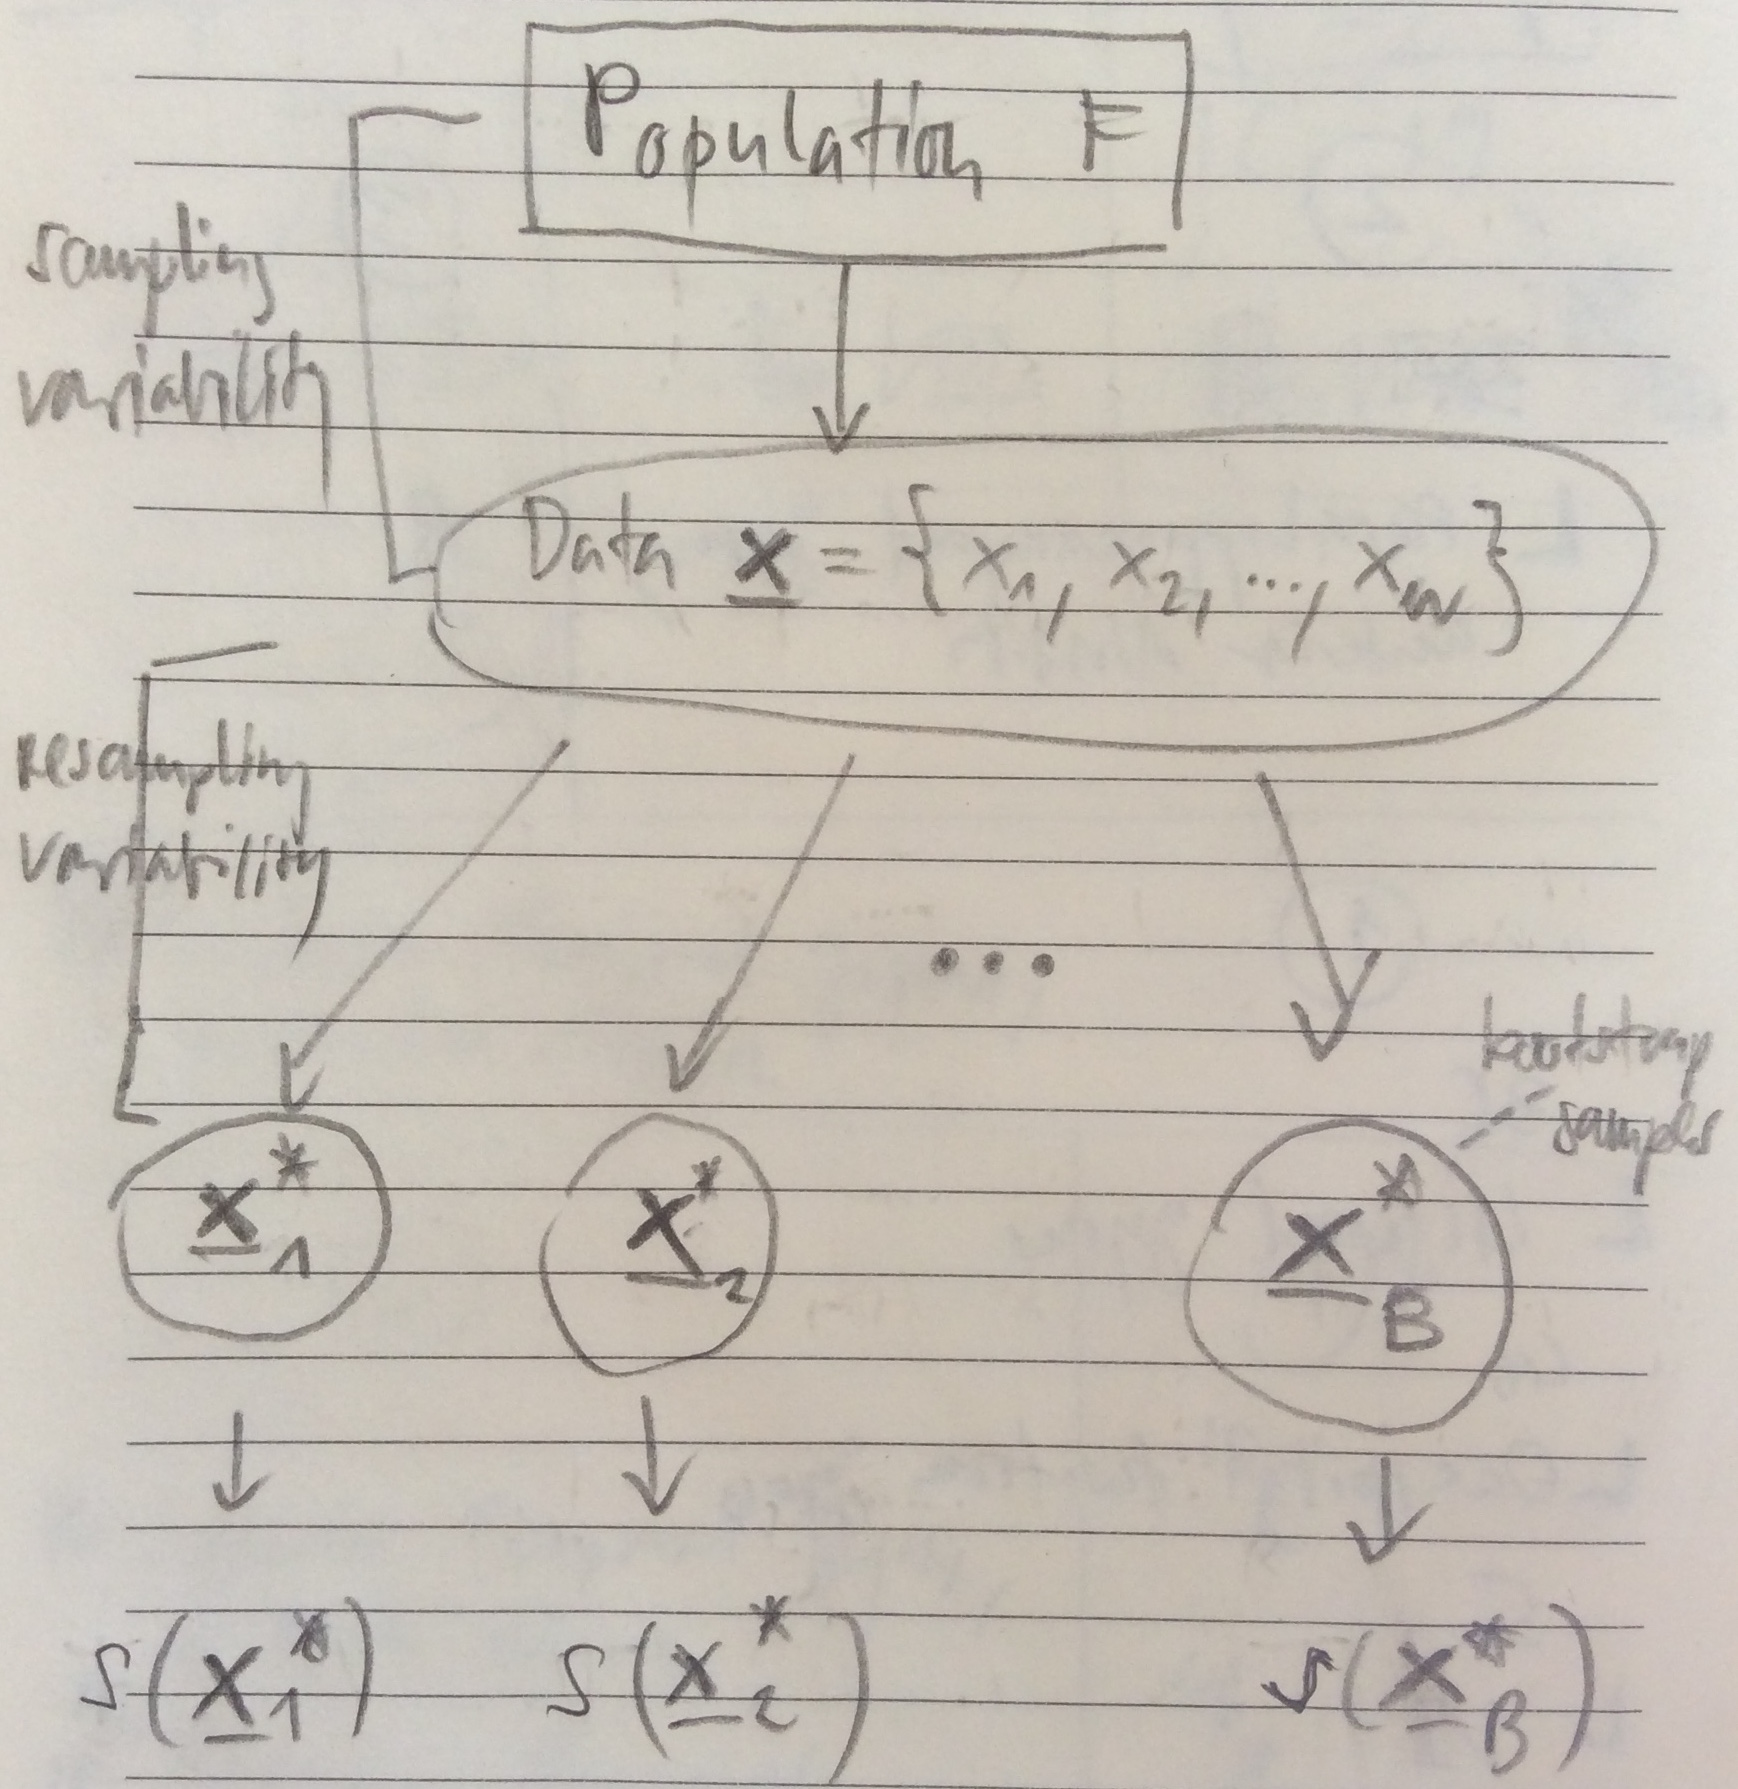 Population F
sampling
variability
Data x = {x1, x2, ..., xn}
resampling
variability
...
bootstrap
samples
x*1
x*2
x*B
s(x*1)
s(x*2)
s(x*B)